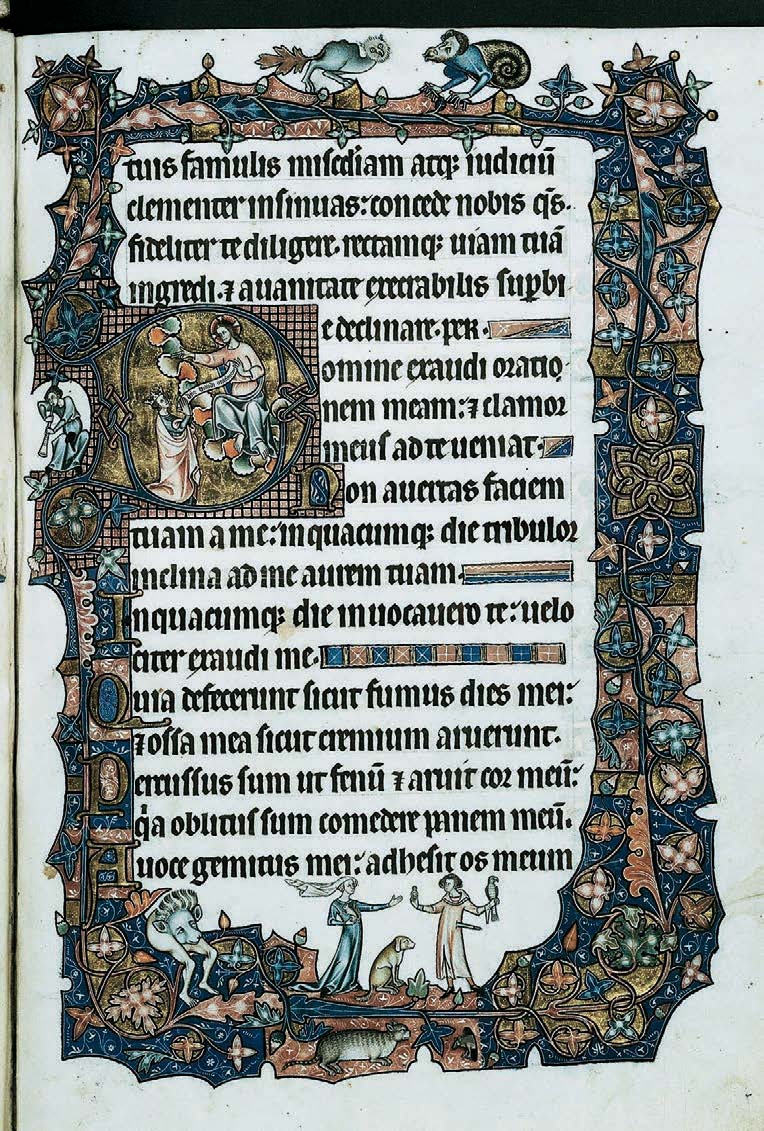 tuis famulis misediam atq; iudiciū
clementer insinuas: concede nobis qs̄.
fideliter te diligere. rectamq; uiam tuā
ingredi. ⁊ a uanitate execrabilis supbi
e declinare. per.
omine exaudi oratio
nem meam: ⁊ clamor
meus ad te ueniat.
Non auertas faciem
tuam a me: in quacumq; die tribulor
inclina ad me aurem tuam.
In quacumq; die inuocauero te: uelo
citer exaudi me.
Quia defecerunt sicut fumus dies mei:
⁊ ossa mea sicut cremium aruerunt.
Percussus sum ut fenū ⁊ aruit cor meū:
qͥa oblitus sum comedere panem meū.
A uoce gemitus mei: adhesit os meum